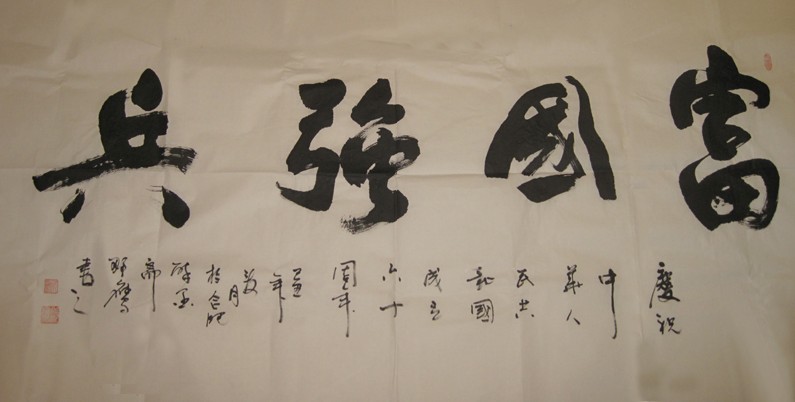 富國強兵
慶祝
中
華人
民共
和國
成立
六十
周年
丑
年
月
於合肥
醉墨
齋
野鷹
書之